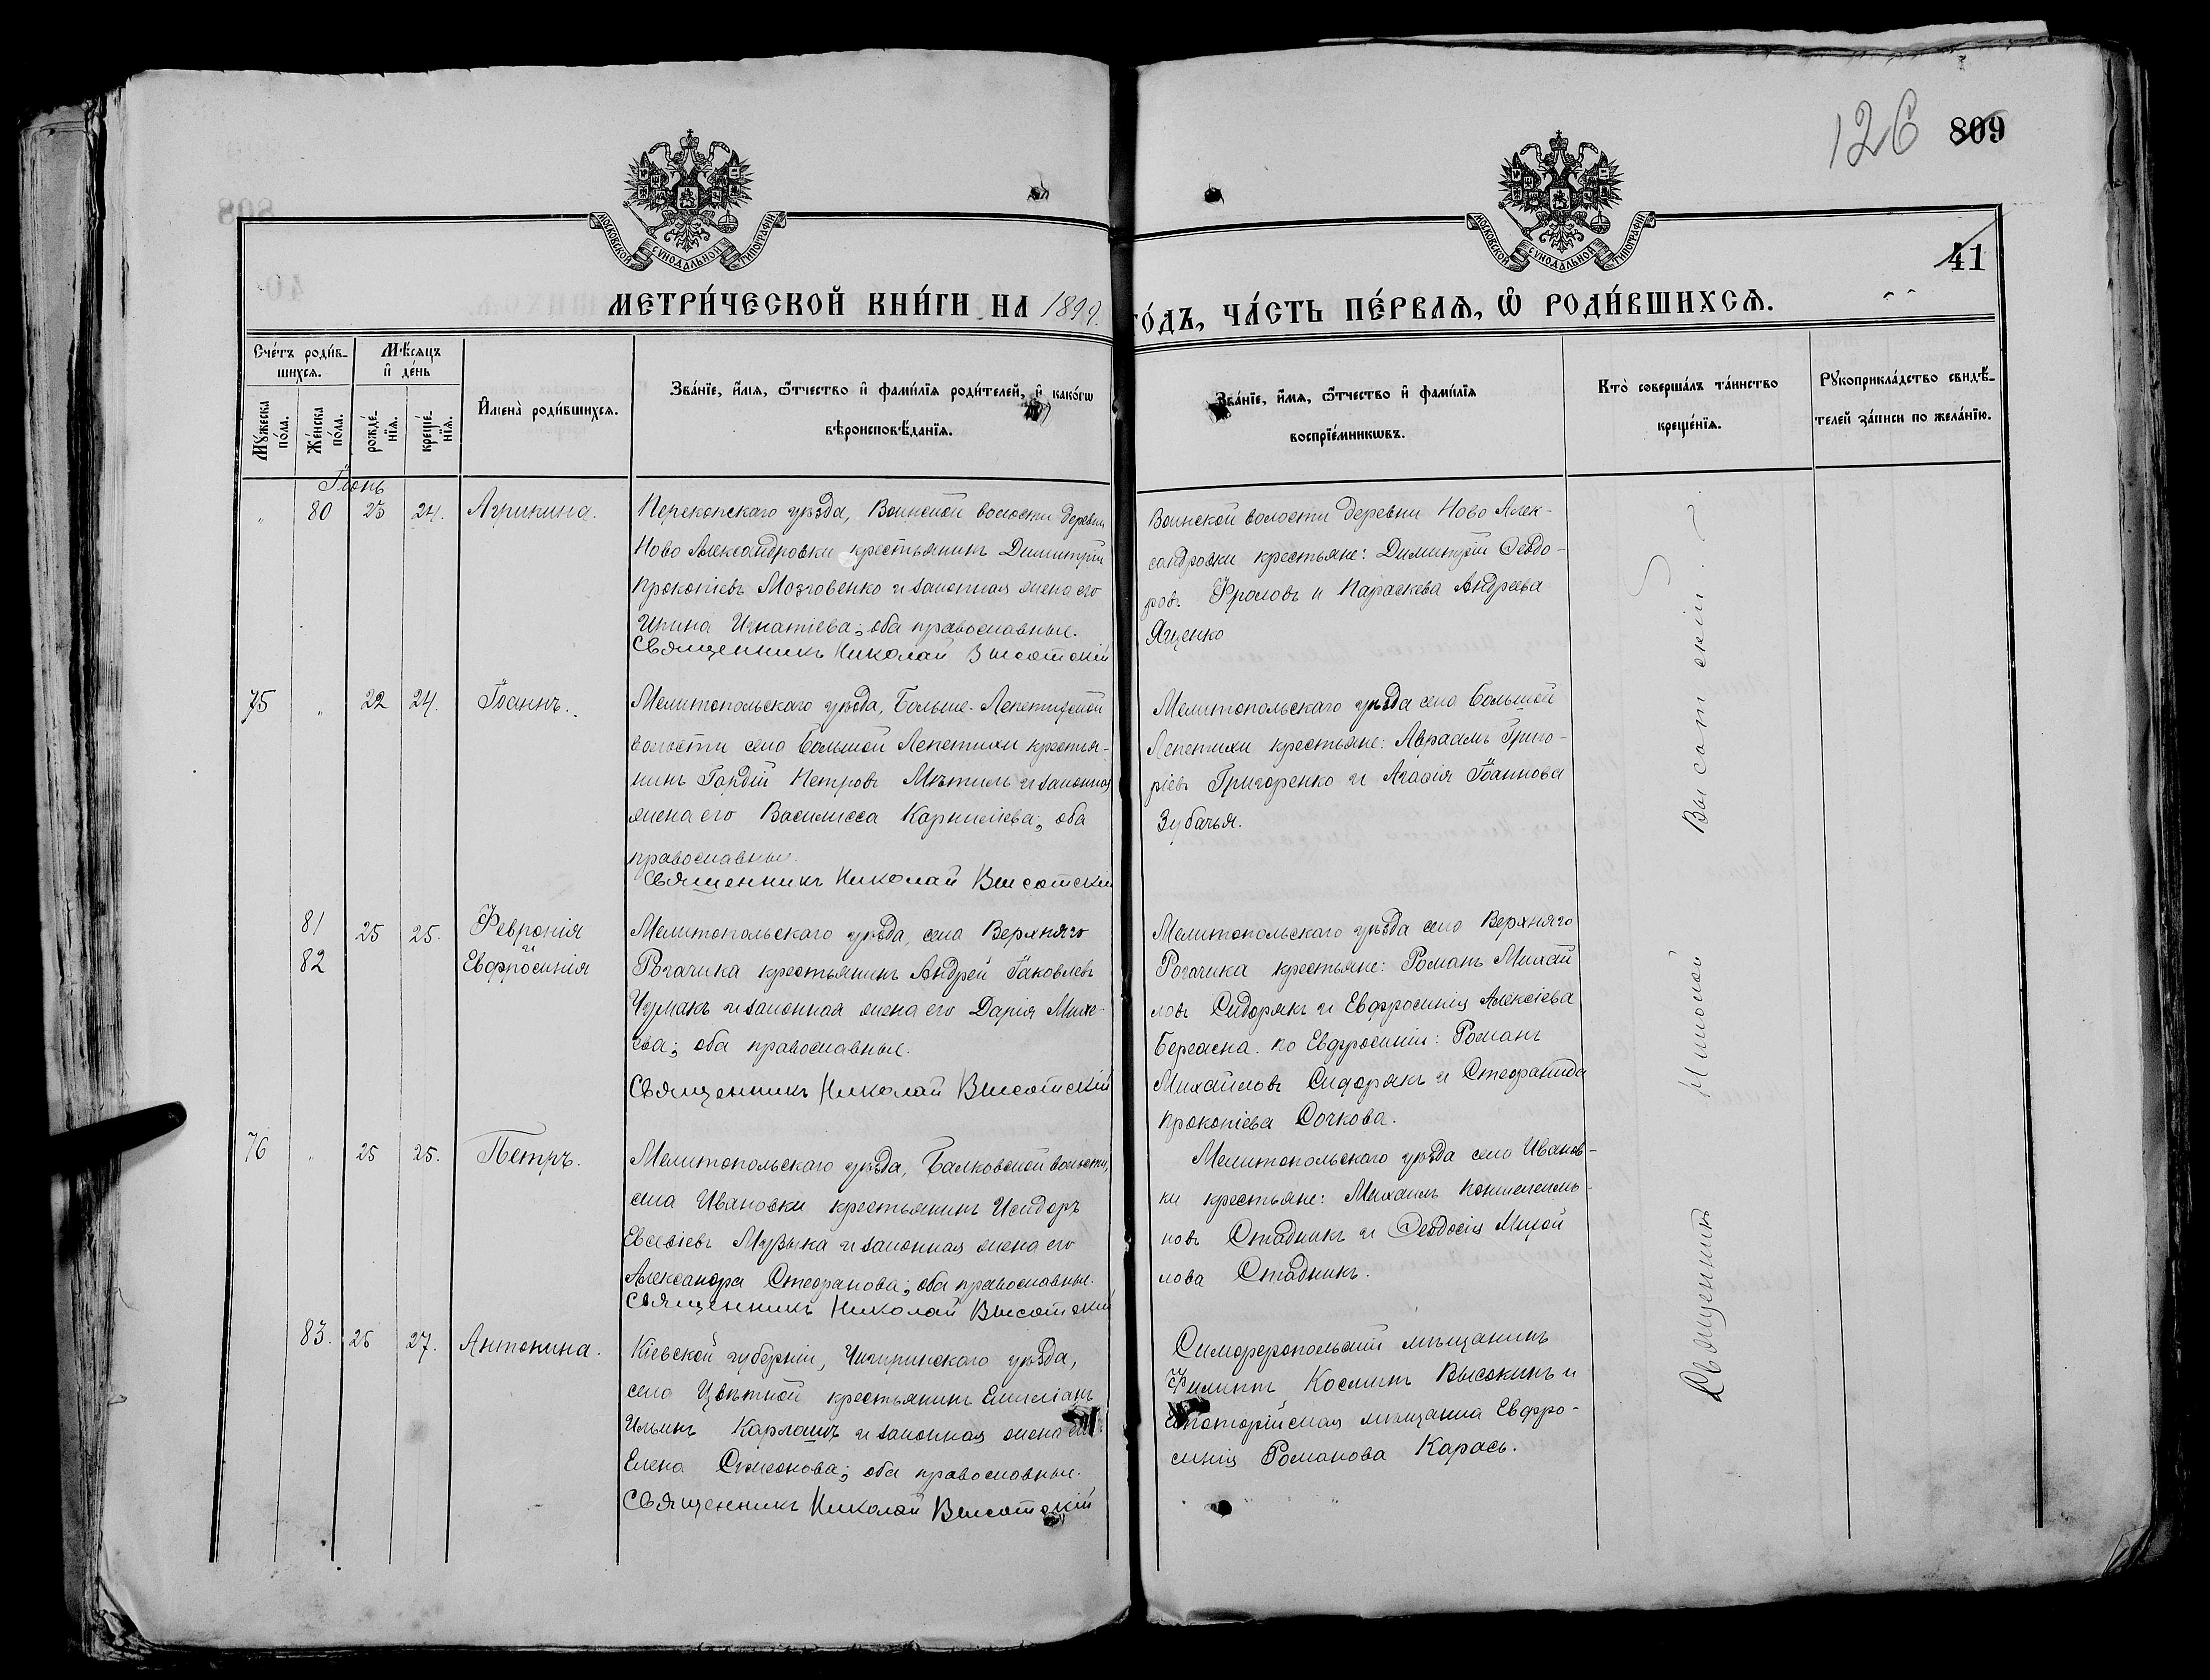 126 809
МОСКОВСКОЙ СѴНОДАЛЬНОЙ ТИПОГРАФІИ
МОСКОВСКОЙ СѴНОДАЛЬНОЙ ТИПОГРАФІИ
41
МЕТРИ́ЧЕСКОЙ КНИ́ГИ НА 1899. ГО́ДЪ, ЧА́СТЬ ПЕ́РВАѦ, Ѽ РОДИ́ВШИХСѦ.
Сче́тъ роди́в-
шихсѧ.
Мꙋ́жеска по́ла.
Же́нска по́ла.
Мѣ́сѧцъ и де́нь
рожде́-
нїѧ.
креще́-
нїѧ.
Имена̀ роди́вшихсѧ.
Зва́нїе, и́мѧ, ѻ́тчество и фами́лїѧ роди́телей, и како́гѡ
вѣроисповѣ́данїѧ.
Зва́нїе, и́мѧ, ѻ́тчество и фами́лїѧ
воспрїе́мникѡвъ.
Кто̀ соверша́лъ та́инство
креще́нїѧ.
Рꙋкоприкла́дство свидѣ́-
телей за́писи по жела́нїю.
Іюнь
" 80 23 24. Агрипина.
Перекопскаго уѣзда, Воинской волости деревни
Ново Александровки крестьянинъ Димитрій
Прокопіевъ Мозговенко и законная жена его
Ирина Игнатіева; оба православные.
Священникъ Николай Высотскій
Воинской волости деревни Ново Алек-
сандровки крестьяне: Димитрій Ѳеодо-
ровъ Фроловъ и Параскева Андреева
Яценко
75 " 22 24. Іоаннъ.
Мелитопольскаго уѣзда, Больше-Лепетихской
волости села Большой Лепетихи крестья-
нинъ Гордій Петровъ и законная
жена его Василисса Корниліева; оба
православные.
Священникъ Николай Высотскій
Мелитопольскаго уѣзда села Большой
Лепетихи крестьяне: Авраамъ Григо-
ріевъ Григоренко и Агафія Іоаннова
Зубачья.
81 25 25. Февронія
и
82 Евфросинія
Мелитопольскаго уѣзда, села Верхняго
Рогачика крестьянинъ Андрей Іаковлевъ
Чумакъ и законная жена его Дарія Михе-
ева; оба православные.
Священникъ Николай Высотскій
Мелитопольскаго уѣзда села Верхняго
Рогачика крестьяне: Романъ Михай
ловъ Сидорякъ и Евфросинія Алексіева
по Евфросиніи: Романъ
Михайловъ Сидорякъ и Стефанида
Прокопіева Сочкова.
76 " 25 25. Петръ.
Мелитопольскаго уѣзда, Балковской волости,
села Ивановки крестьянинъ Исидоръ
Евсевіевъ Музыка и законная жена его
Александра Стефанова; оба православные.
Священникъ Николай Высотскій
Мелитопольскаго уѣзда села Иванов-
ки крестьяне: Михаилъ
новъ Стадникъ и Ѳеодосія Михай
лова Стадникъ.
83. 26 27. Антонина.
Кіевской губерніи, Чигиринскаго уѣзда,
села Цвѣтной крестьянинъ Емиліанъ
Ильинъ Карлашъ и законная жена его
Елена Симеонова; оба православные.
Священникъ Николай Высотскій
Симферопольскій мѣщанинъ
Филиппъ Косминъ Высокинъ и
Евпаторійская мѣщанка Евфро-
синія Романова Карась.
Священникъ Николай Высотскій.